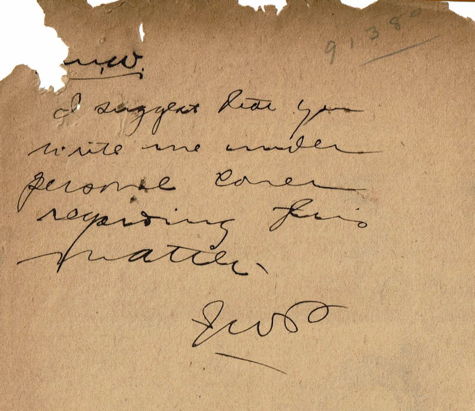 9 1 3 8 0
W.
I suggest that you
write me under
personal cover
regarding this
matter.
JWP